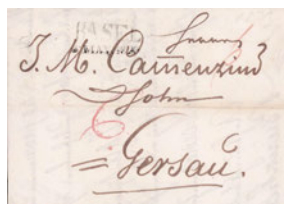 BASEL
Herrn
J. M. Cam̄enzind
Sohn
= Gersau.